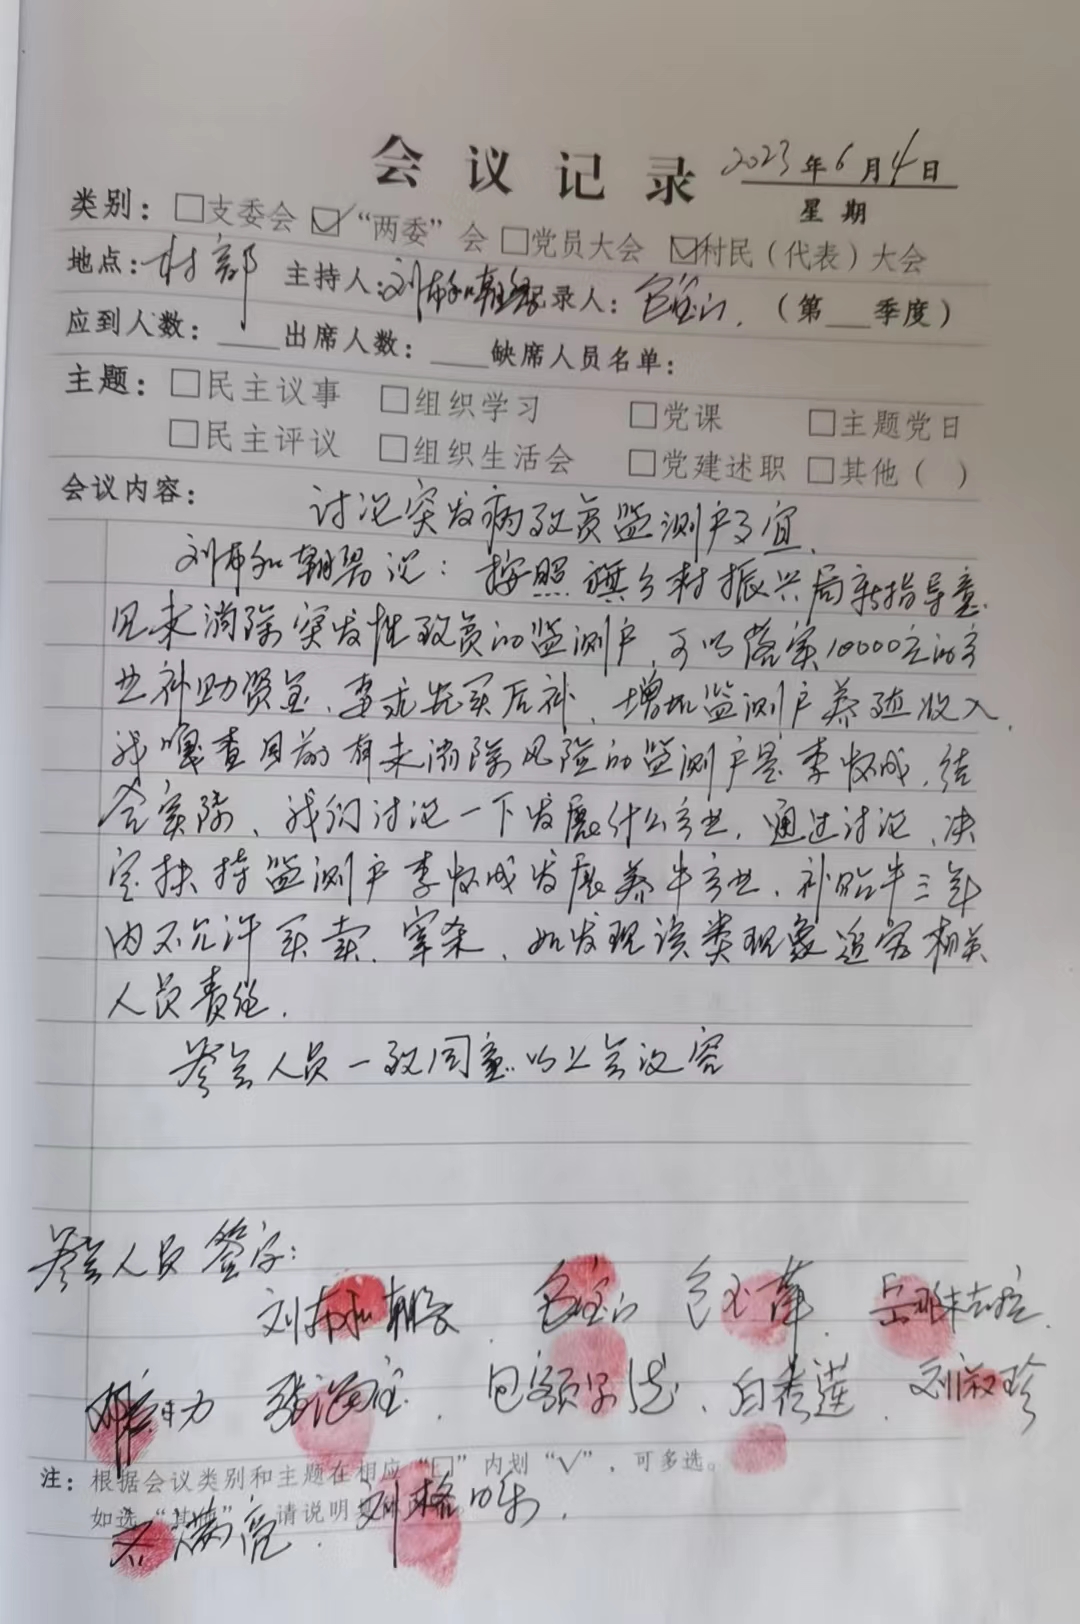 会议记录 2023年6月4日
星期
类别：□支委会 ☑“两委”会 □党员大会 ☑村民（代表）大会
地点：村部 主持人：刘布和朝鲁 记录人：包宝山 （第___季度）
应到人数：____出席人数：____缺席人员名单：
主题：□民主议事 □组织学习 □党课 □主题党日
□民主评议 □组织生活会 □党建述职 □其他（ ）
会议内容： 讨论突发病致贫监测户事宜.
刘布和朝鲁说：按照旗乡村振兴局新指导意
见未消除突发性致贫的监测户，可以落实10000元的产
业补助资金，要求先买后补，增加监测户养殖收入，
我嘎查目前有未消除风险的监测户是李怀成，结
合实际，我们讨论一下发展什么产业，通过讨论，决
定扶持监测户李怀成发展养牛产业，补贴牛三年
内不允许买卖、宰杀，如发现该类现象追究相关
人员责任.
参会人员一致同意以上会议容
参会人员签字：
刘布和朝鲁 包宝山 包玉萍
张海宝 白秀莲 刘淑珍
注：根据会议类别和主题在相应“□”内划“√”，可多选。
如选“其他”，请说明
满亮